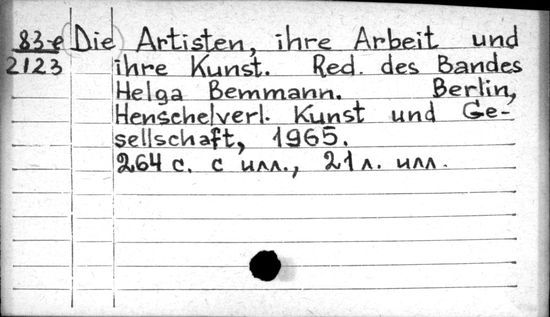 83-е (Die) Artisten, ihre Arbeit und
2123 ihre Kunst. Red. des Bandes
Helga Bemmann. Berlin,
Henschelverl. Kunst und Ge-
sellschaft, 1965.
264 с. с илл., 21 л. илл.